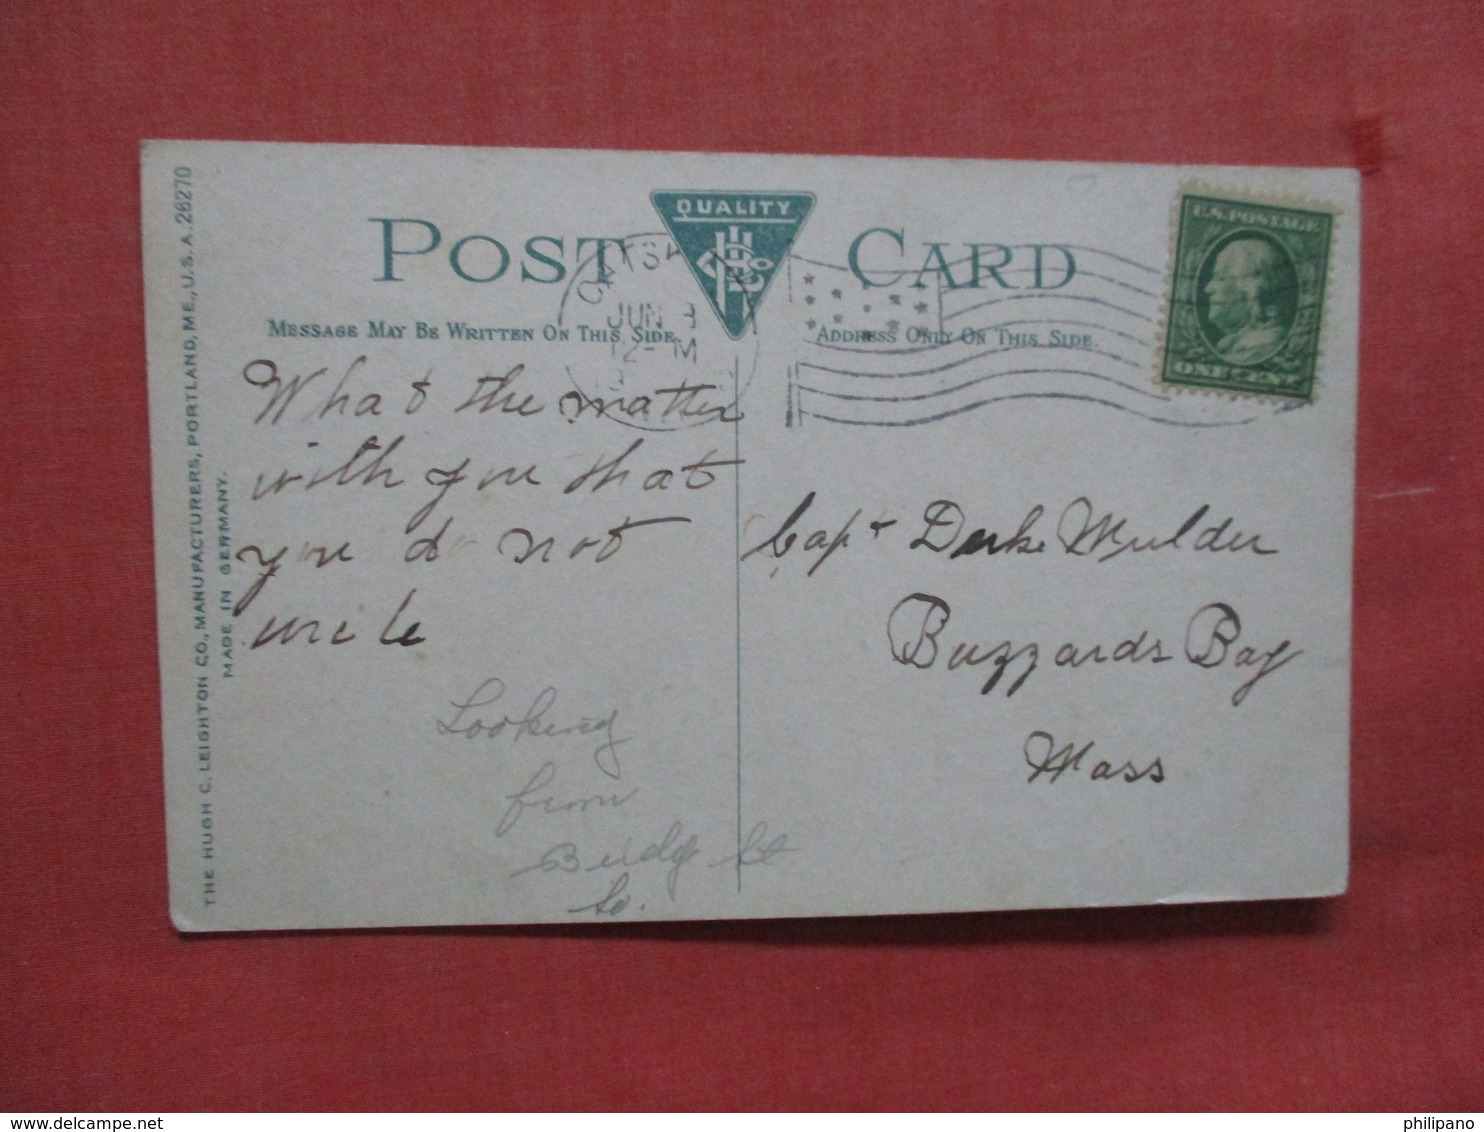 THE HUGH C. LEIGHTON CO., MANUFACTURERS, PORTLAND, ME., U.S.A. 26270
MADE IN GERMANY.
POST CARD
QUALITY
MESSAGE MAY BE WRITTEN ON THIS SIDE.
ADDRESS ONLY ON THIS SIDE.
JUN
12-M
U.S. POSTAGE
ONE CENT
What the matter
with you that
you do not
write
Looking
from
Bridge St
So.
Capt Derke Mulder
Buzzards Bay
Mass
www.delcampe.net
philipano